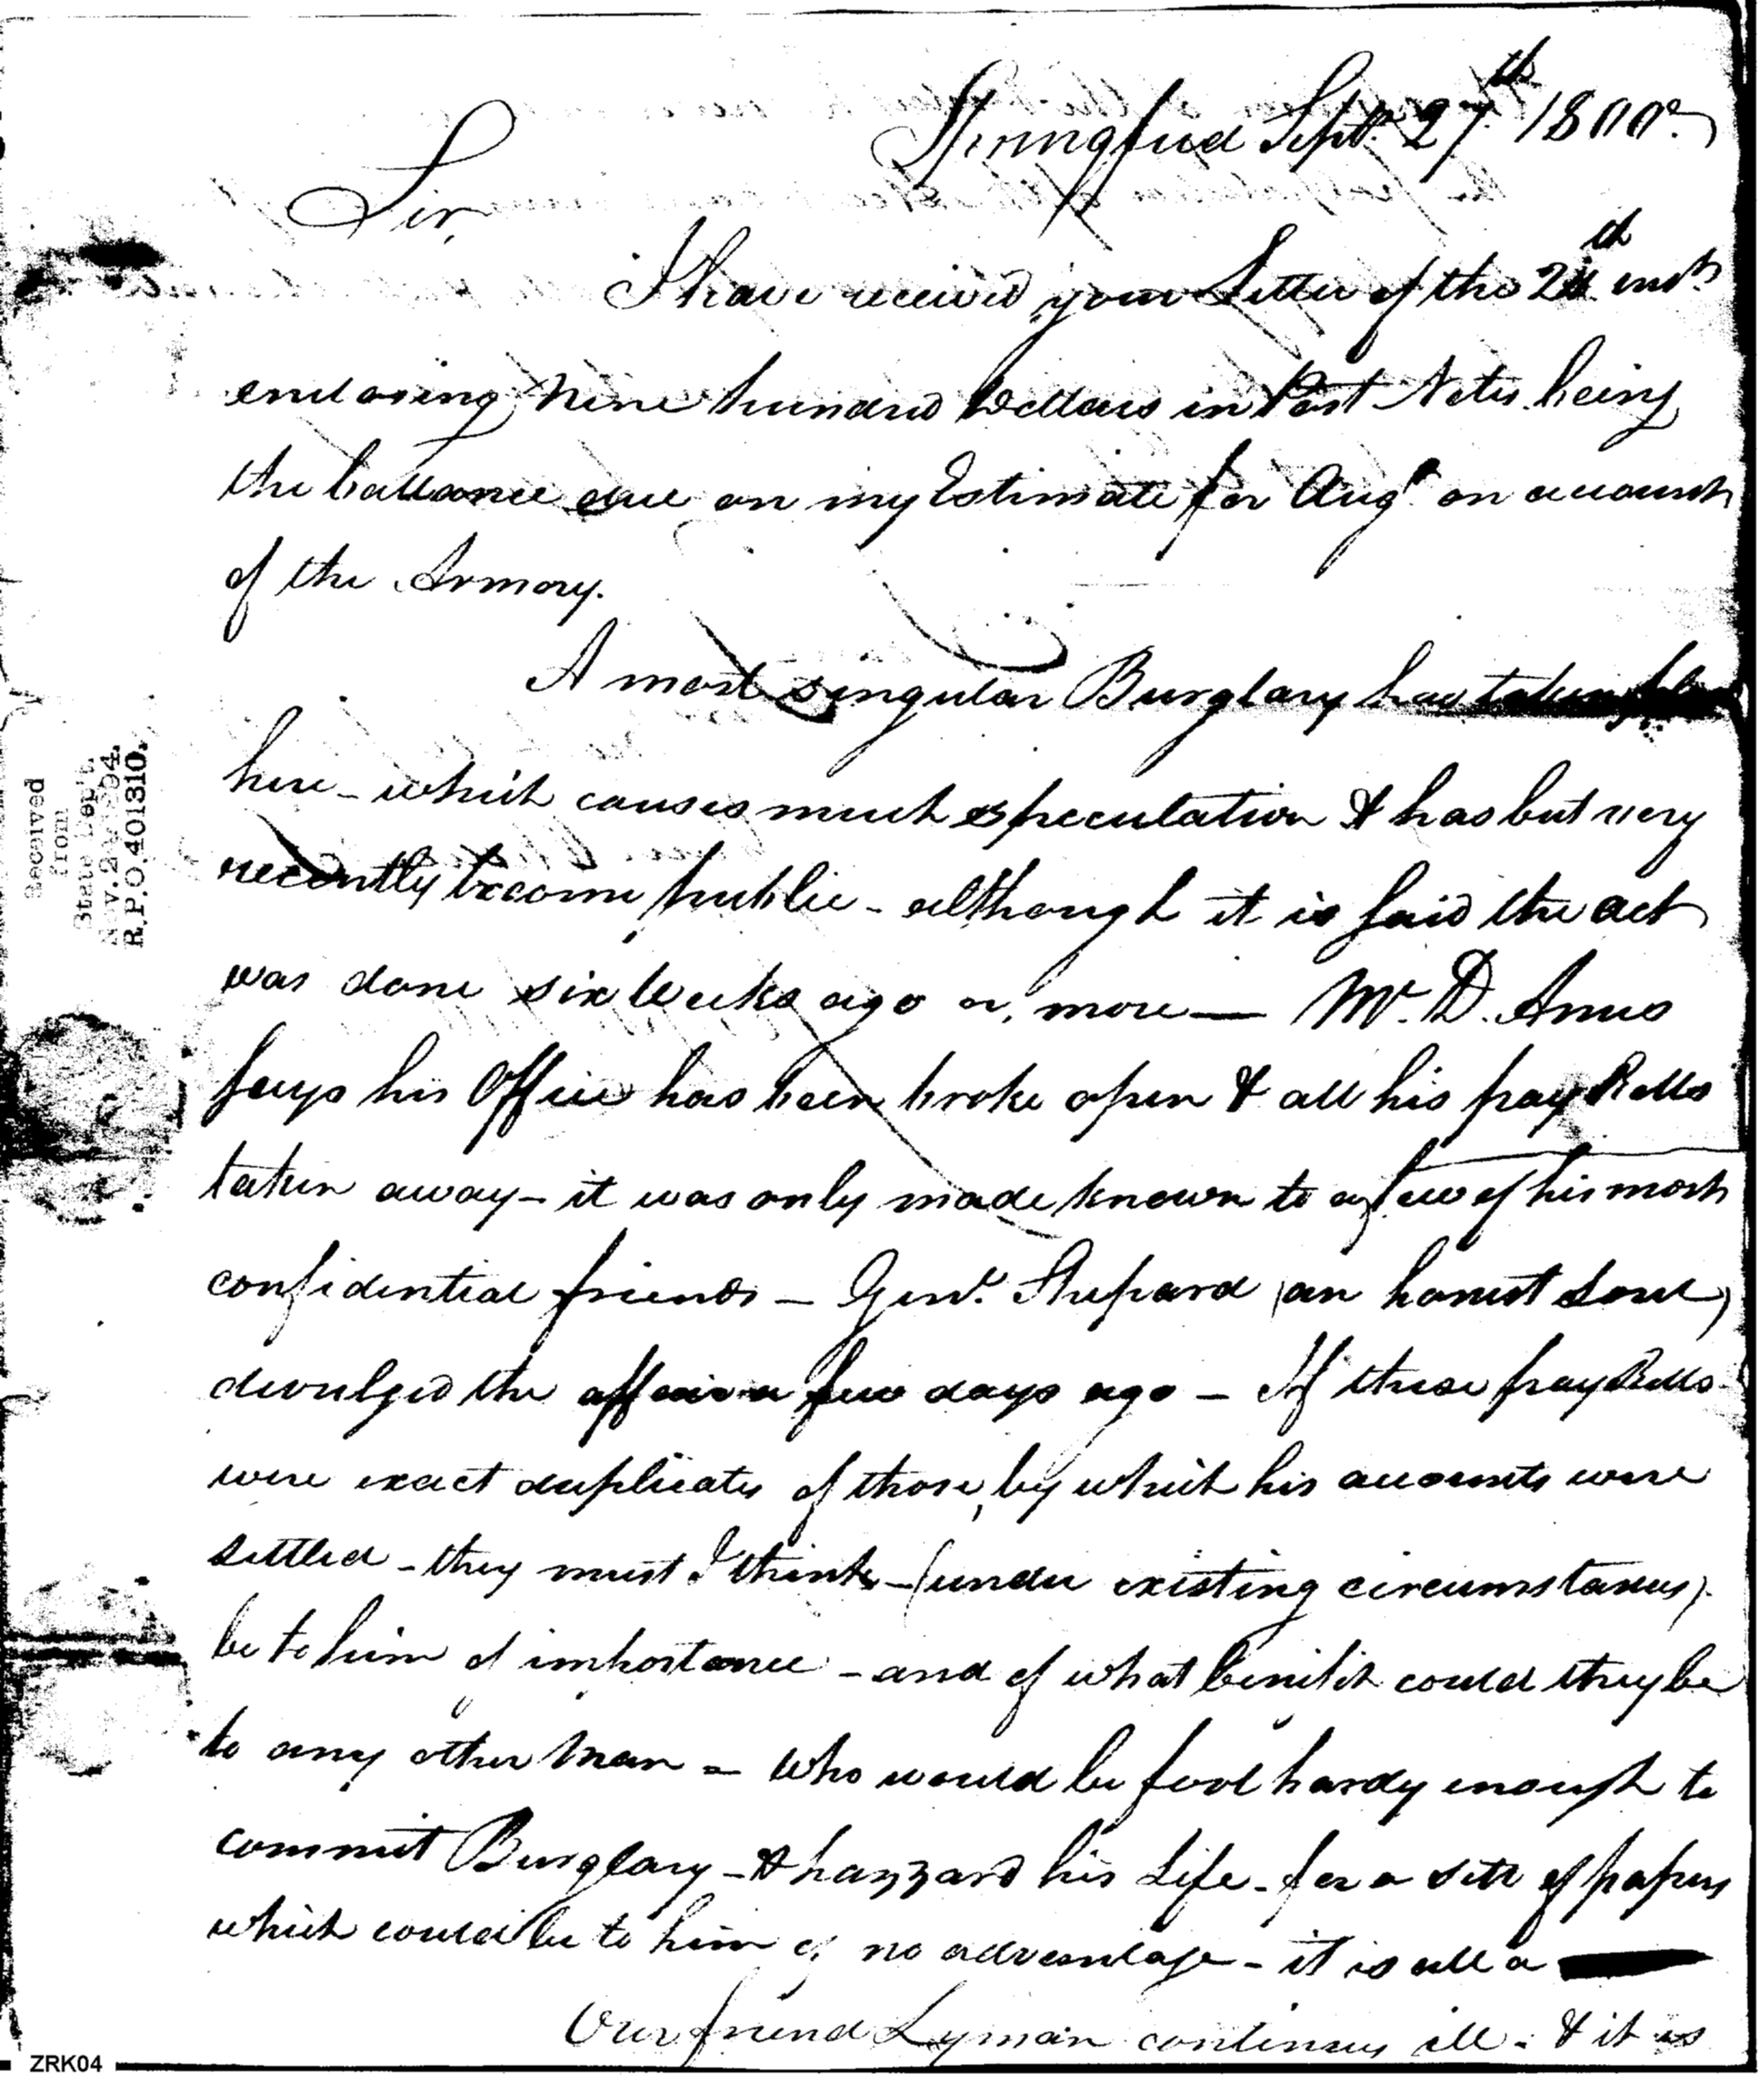 Springfield Septr. 27th 1800.
Sir,
I have received your Letter of the inst
enclosing Nine hundred Dollars in Post Notes being
the ballance due on my Estimate for Augt. on account
of the Armory.
A most singular Burglary has taken place
here - which causes much speculation & has but very
recently become public - although it is said the act
was done six Weeks ago or, more — Mr. D. Ames
says his Office has been broke open & all his pay Rolls
taken away - it was only made known to a few of his most
confidential friends - Genl. Shepard (an honest Soul)
divulged the affair a few days ago - If these pay Rolls
were exact duplicates of those, by which his accounts were
settled - they must I think - (under existing circumstances)
be to him of importance - and of what benifit could they be
to any other Man - Who would be fool hardy enough to
commit Burglary - & hazzard his Life - for a sett of papers
which could be to him of no advantage - it is all a
Our friend Lyman continues ill - & it is
Received
from
State Dep't.
Nov. 2 1894.
R.P.O. 401310.
ZRK04